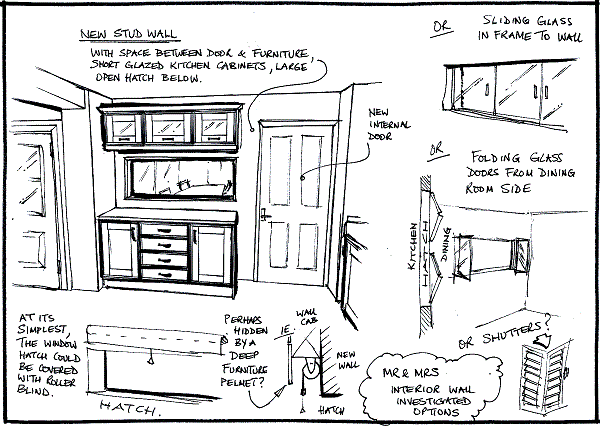 NEW STUD WALL
WITH SPACE BETWEEN DOOR & FURNITURE,
SHORT GLAZED KITCHEN CABINETS, LARGE
OPEN HATCH BELOW.
NEW
INTERNAL
DOOR
OR SLIDING GLASS
IN FRAME TO WALL
OR
FOLDING GLASS
DOORS FROM DINING
ROOM SIDE
KITCHEN
HATCH
DINING
AT ITS
SIMPLEST,
THE WINDOW
HATCH COULD
BE COVERED
WITH ROLLER
BLIND.
HATCH.
PERHAPS
HIDDEN
BY A
DEEP
FURNITURE
PELMET?
IE.
WALL
CAB
NEW
WALL
HATCH
OR SHUTTERS?
MR & MRS
INTERIOR WALL
INVESTIGATED
OPTIONS